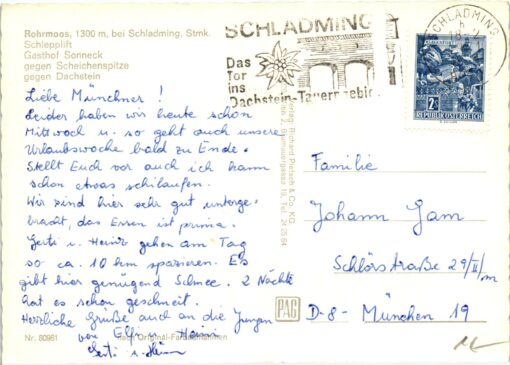 Rohrmoos, 1300 m, bei Schladming, Stmk.
Schlepplift
Gasthof Sonneck
gegen Scheichenspitze
gegen Dachstein
SCHLADMING
Das
Tor
ins
Dachstein-Tauerngebiet
SCHLADMING
2S
REPUBLIK ÖSTERREICH
Liebe Münchner !
Leider haben wir heute schon
Mittwoch u. so geht auch unsere
Urlaubswoche bald zu Ende.
Stellt Euch vor auch ich kann
schon etwas schilaufen.
Wir sind hier sehr gut unterge-
bracht, das Essen ist prima.
Gerti u. Heinz gehen am Tag
so ca. 10 km spazieren. Es
gibt hier genügend Schnee. 2 Nächte
hat es schon geschneit.
Herzliche Grüße auch an die Jungen
von Elfi u. Heini
Gerti u.
Verlag: Richard Pietsch & Co. KG
Familie
Johann Gam
Schlörstraße 29/II/m
D-8- München 19
PAG
Nr. 80981
nach Original-Farbaufnahmen